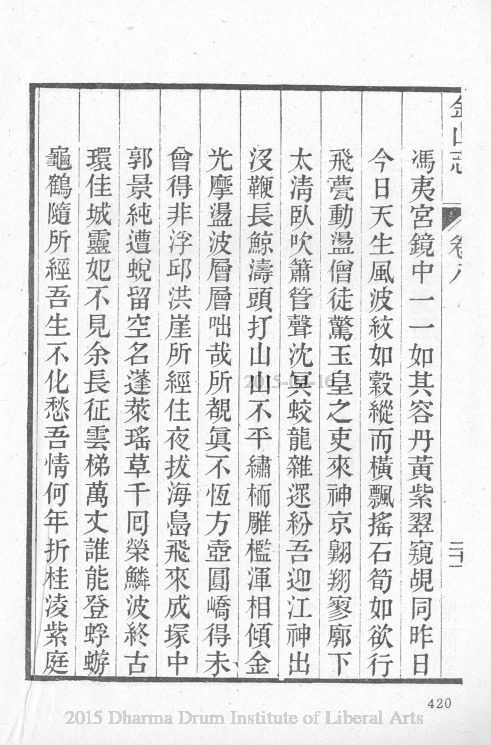 金山志 卷八 二十一
馮夷宮鏡中一一如其容丹黃紫翠窺覘同昨日
今日天生風波紋如縠縱而橫飄搖石筍如欲行
飛甍動盪僧徒驚玉皇之吏來神京翺翔寥廓下
太淸臥吹簫管聲沈冥蛟龍雜遝紛吾迎江神出
沒鞭長鯨濤頭打山山不平繡栭雕檻渾相傾金
光摩盪波層層咄哉所覩眞不恆方壺圓嶠得未
曾得非浮邱洪崖所經住夜拔海島飛來成塚中
郭景純遭蛻留空名蓬萊瑤草千囘榮鱗波終古
環佳城靈妃不見余長征雲梯萬丈誰能登蜉蝣
龜鶴隨所經吾生不化愁吾情何年折桂凌紫庭
2015-04-16
420
2015 Dharma Drum Institute of Liberal Arts